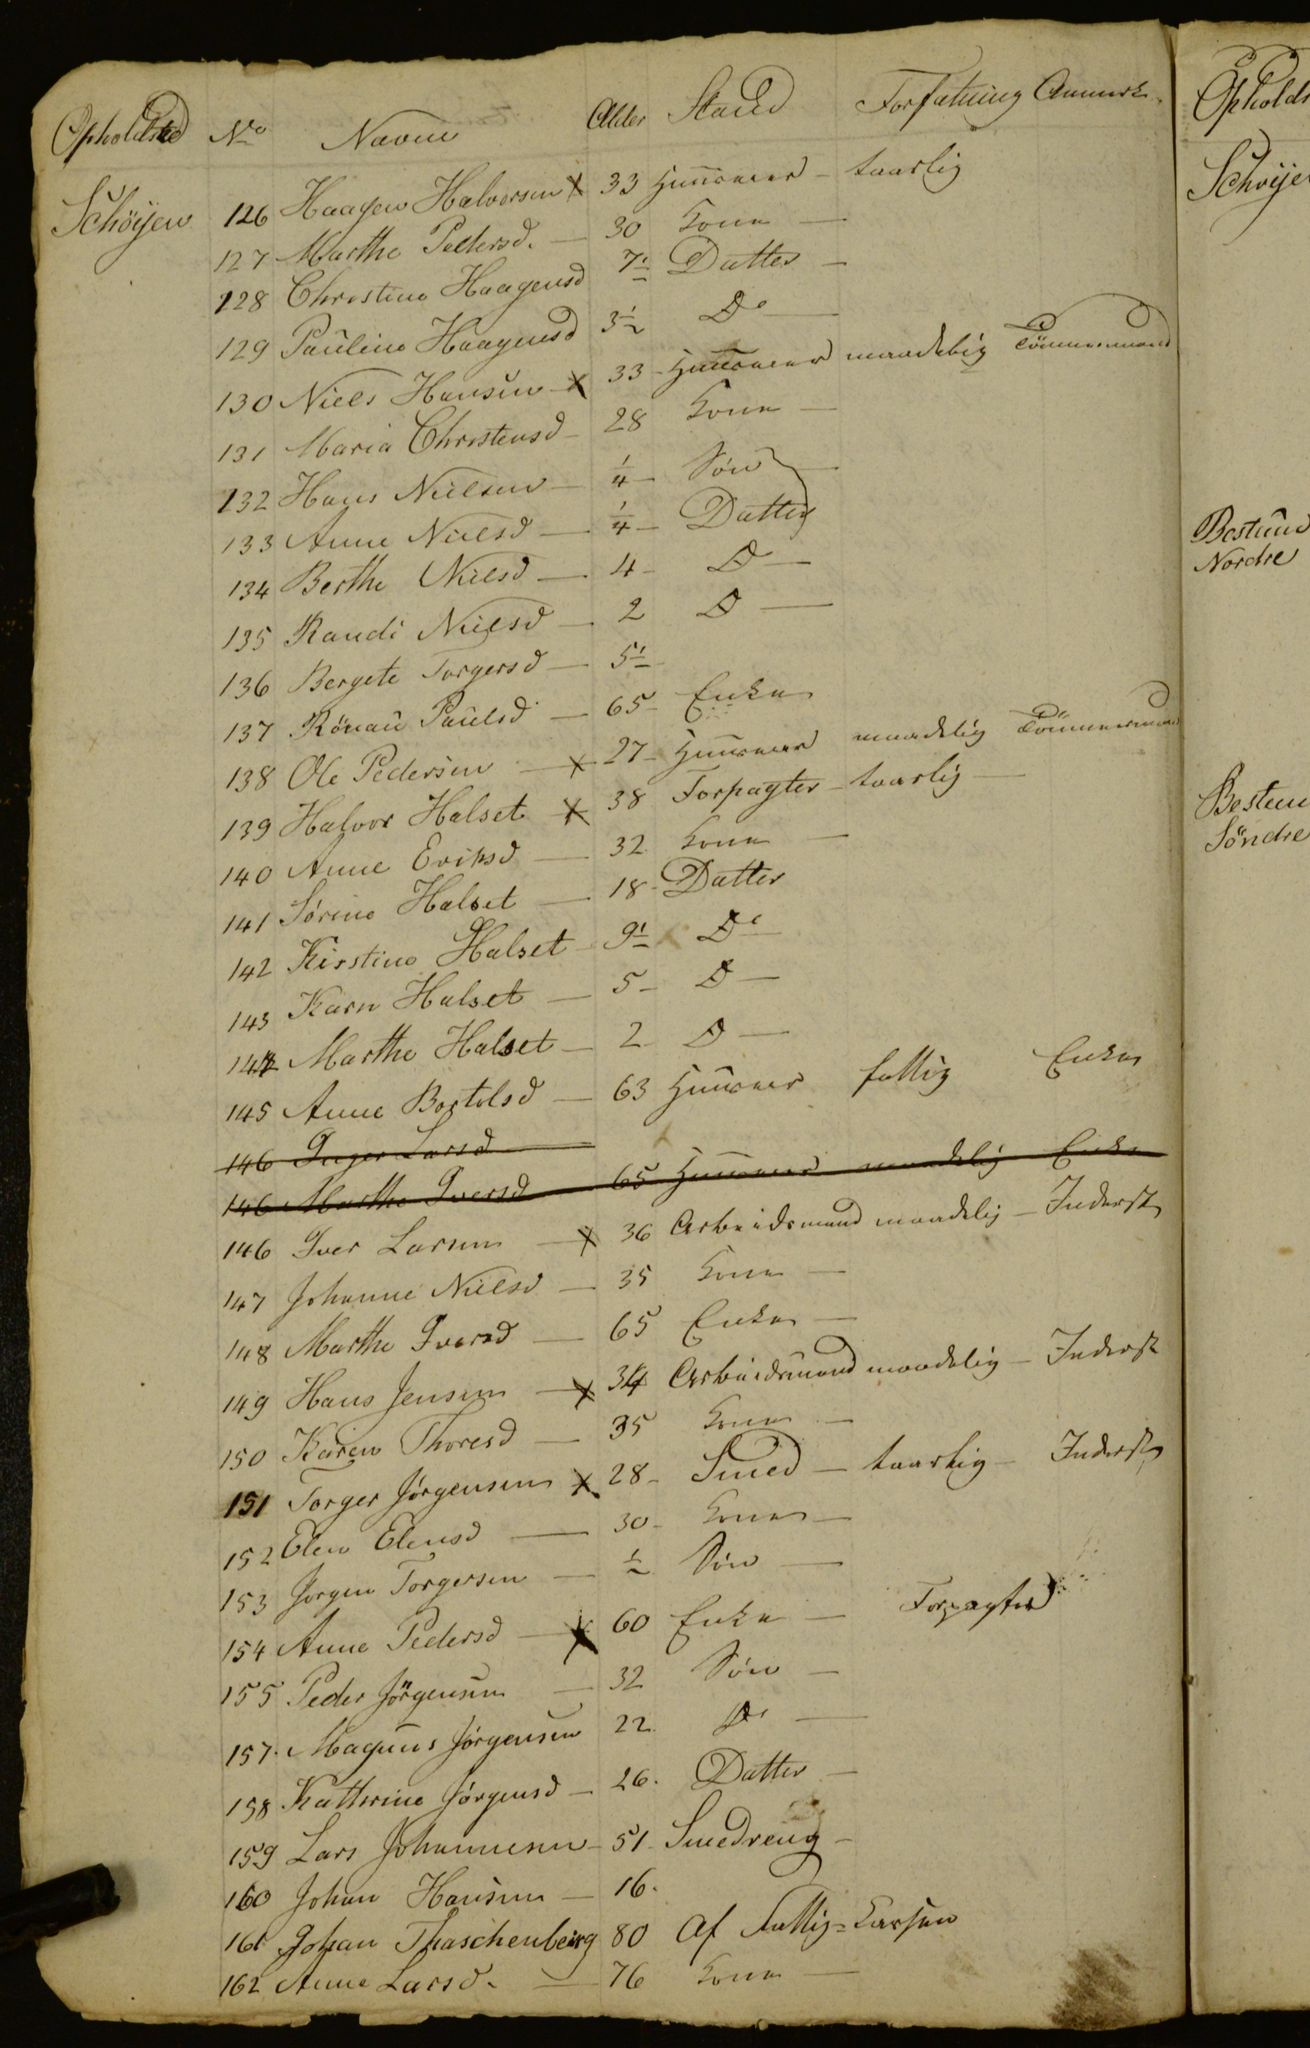 Opholdsted No Navne Alder Stand Forfatning Anmerk.
Schöijen 126 Haagen Halvorsen x 33 Huusmand - taarlig
127 Marthe Pedersd. - 30 Kone -
128 Christine Haagensd 7½ Datter -
129 Pauline Haagensd 3½ Do -
130 Niels Hansen - x 33 - Huusmand maadelig Tömmermand
131 Maria Christensd - 28 Kone -
132 Hans Nielsen - ¼ - Sön -
133 Anne Nielsd - ¼ - Datter
134 Berthe Nielsd - 4 - D -
135 Randi Nielsd - 2 D -
136 Bergete Torgersd - 5½
137 Rönau Paulsd - 65 - Enke
138 Ole Pedersen - x 27 - Huusmand maadelig Tömmermand
139 Halvor Halset x 38 Forpagter - taarlig -
140 Anne Eriksd - 32 Kone -
141 Sörine Halset - 18 - Datter
142 Kirstine Halset - 9½ Do -
143 Karn Halset - 5 - D -
144 Marthe Halset - 2 D -
145 Anne Bortolsd - 63 Huusmand fattig Enke
146 Inger Larsd
146 Marthe Iversd 65 Huusmand maadelig Enke
146 Iver Larsen - x 36 Arbeidsmand maadelig - Inderst
147 Johanne Nielsd - 35 Kone -
148 Marthe Iversd - 65 Enke -
149 Hans Jensen - x 34 Arbeidsmand maadelig - Inderst
150 Karen Thoresd - 35 Kone -
151 Torger Jörgensen x 28 - Smed - taarlig - Inderst
152 Elen Elensd - 30 - Kone -
153 Jörgen Torgersen - ½ Sön -
154 Anne Pedersd - x 60 Enke - Forpagter
155 Peder Jörgensen - 32 Sön -
157. Magnus Jörgensen 22. Do -
158 Kathrine Jörgensd - 26. Datter -
159 Lars Johannesen - 51 Smedreng -
160 Johan Hansen - 16.
161 Johan Thaschenberg 80 Af Fattig=Cassen
162 Anne Larsd. - 76 Kone -
Opholds
Schöije
Bestum
Nordre
Bestum
Söndre